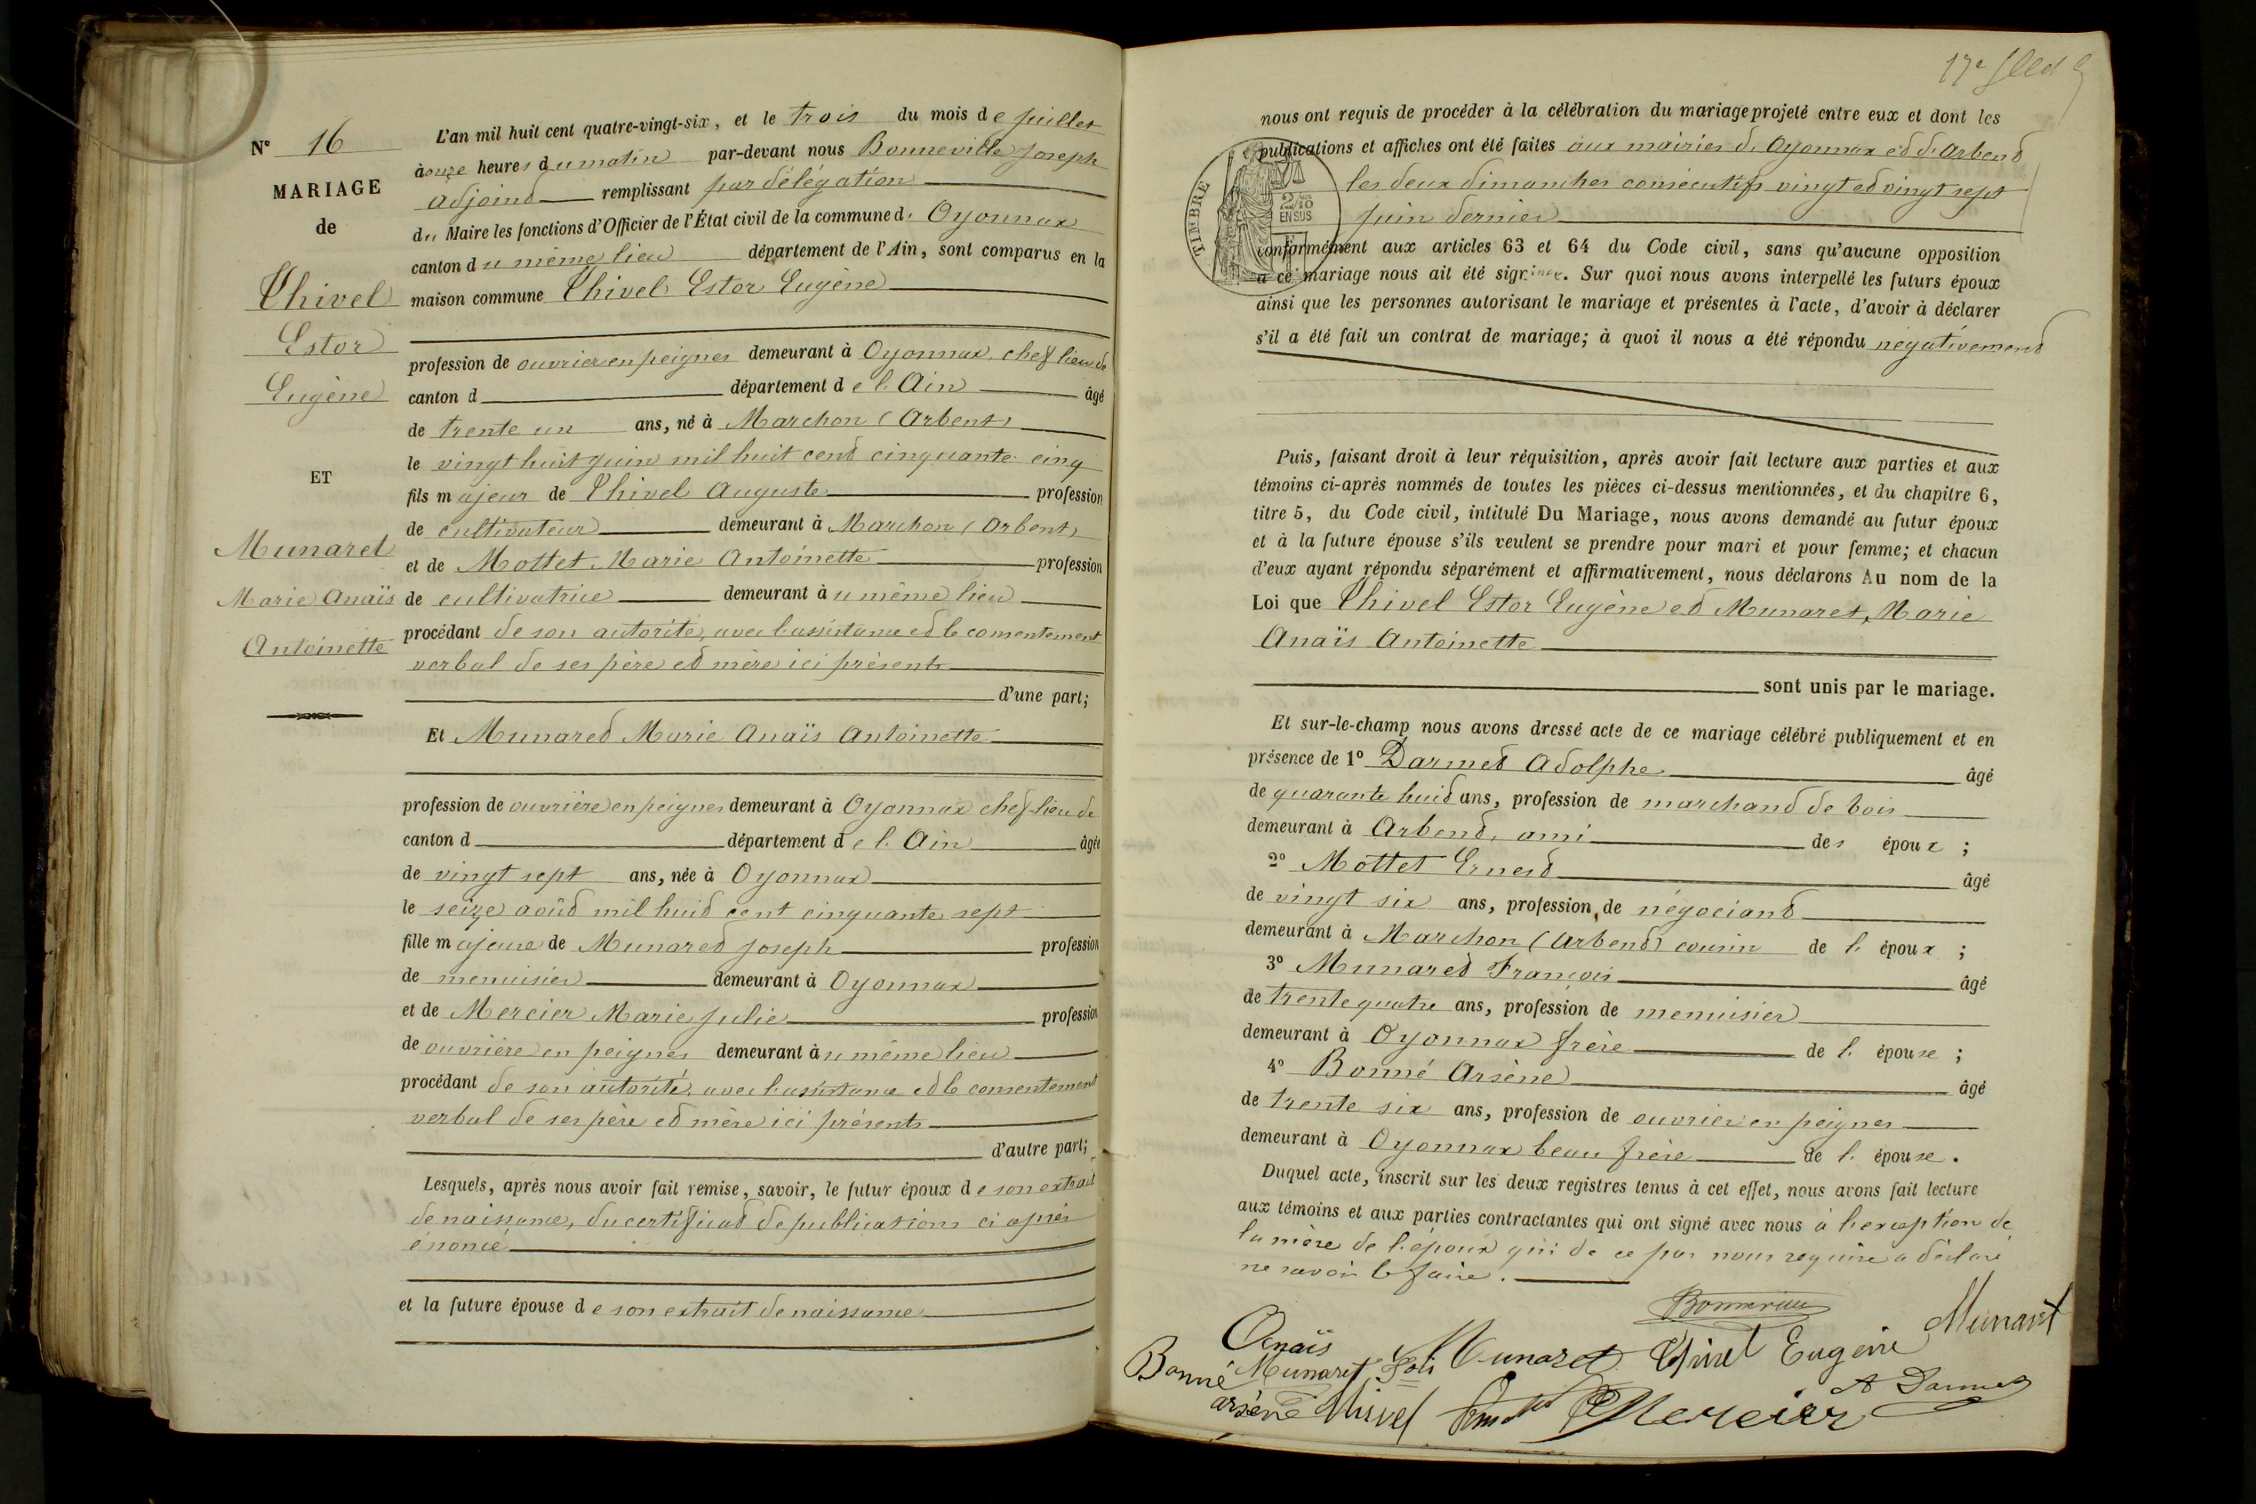 N° 16
MARIAGE
de
Thivel
Estor
Eugène
ET
Munaret
Marie Anaïs
Antoinette
L'an mil huit cent quatre-vingt-six, et le trois du mois de juillet
à onze heures du matin par-devant nous Bonneville Joseph
adjoint remplissant par délégation
du Maire les fonctions d'Officier de l'État civil de la commune d' Oyonnax
canton du même lieu département de l'Ain, sont comparus en la
maison commune Thivel Estor Eugène
profession de ouvrier en peignes demeurant à Oyonnax, chef lieu de
canton d département de l'Ain âgé
de trente un ans, né à Marchon (Arbent)
le vingt huit juin mil huit cent cinquante cinq
fils majeur de Thivel Auguste profession
de cultivateur demeurant à Marchon (Arbent)
et de Mottet Marie Antoinette profession
de cultivatrice demeurant au même lieu
procédant de son autorité, avec l'assistance et le consentement
verbal de ses père et mère ici présents
d'une part;
Et Munaret Marie Anaïs Antoinette
profession de ouvrière en peignes demeurant à Oyonnax chef-lieu de
canton d département de l'Ain âgée
de vingt sept ans, née à Oyonnax
le seize août mil huit cent cinquante sept
fille majeure de Munaret Joseph profession
de menuisier demeurant à Oyonnax
et de Mercier Marie Julie profession
de ouvrière en peignes demeurant au même lieu
procédant de son autorité, avec l'assistance et le consentement
verbal de ses père et mère ici présents
d'autre part;
Lesquels, après nous avoir fait remise, savoir, le futur époux de son extrait
de naissance, du certificat de publications ci après
énoncé
et la future épouse de son extrait de naissance
17e
nous ont requis de procéder à la célébration du mariage projeté entre eux et dont les
publications et affiches ont été faites aux mairies d'Oyonnax et d'Arbent
les deux dimanches consécutifs vingt et vingt sept
juin dernier
TIMBRE
2/10 EN SUS
conformément aux articles 63 et 64 du Code civil, sans qu'aucune opposition
à ce mariage nous ait été signifiée. Sur quoi nous avons interpellé les futurs époux
ainsi que les personnes autorisant le mariage et présentes à l'acte, d'avoir à déclarer
s'il a été fait un contrat de mariage; à quoi il nous a été répondu négativement
Puis, faisant droit à leur réquisition, après avoir fait lecture aux parties et aux
témoins ci-après nommés de toutes les pièces ci-dessus mentionnées, et du chapitre 6,
titre 5, du Code civil, intitulé Du Mariage, nous avons demandé au futur époux
et à la future épouse s'ils veulent se prendre pour mari et pour femme; et chacun
d'eux ayant répondu séparément et affirmativement, nous déclarons Au nom de la
Loi que Thivel Estor Eugène et Munaret, Marie
Anaïs Antoinette
sont unis par le mariage.
Et sur-le-champ nous avons dressé acte de ce mariage célébré publiquement et en
présence de 1° Darmet Adolphe âgé
de quarante huit ans, profession de marchand de bois
demeurant à Arbent, ami des époux ;
2° Mottet Ernest âgé
de vingt six ans, profession de négociant
demeurant à Marchon (Arbent) cousin de l'époux ;
3° Munaret François âgé
de trente quatre ans, profession de menuisier
demeurant à Oyonnax frère de l'épouse ;
4° Bonné Arsène âgé
de trente six ans, profession de ouvrier en peignes
demeurant à Oyonnax beau frère de l'épouse.
Duquel acte, inscrit sur les deux registres tenus à cet effet, nous avons fait lecture
aux témoins et aux parties contractantes qui ont signé avec nous à l'exception de
la mère de l'époux qui de ce par nous requise a déclaré
ne savoir le faire.
Bonneville
Munaret
Anaïs
Munaret
Munaret Thivel Eugène
Bonné
arsène
Thivel
Mercier
A Darmet